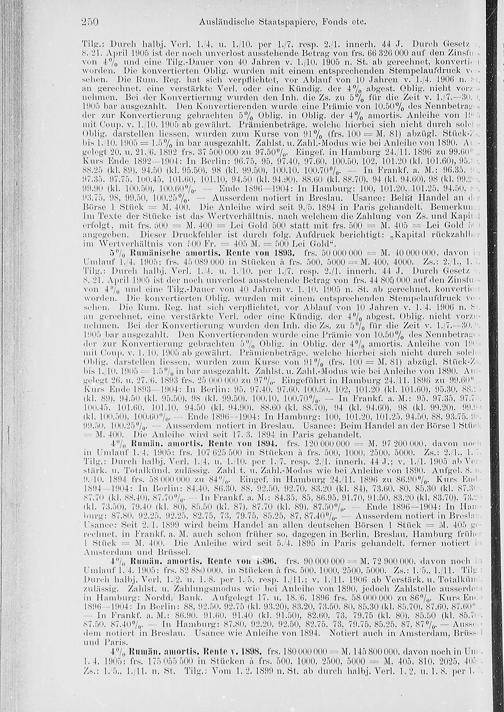 250 Ausländische Staatspapiere, Fonds etc.
Tilg.: Durch halbj. Verl. 1./4. u. 1./10. per 1./7. resp. 2./1. innerh. 44 J. Durch Gesetz
8./21. April 1905 ist der noch unverlost ausstehende Betrag von frs. 66 326 000 auf den Zinsfu
von 4% und eine Tilg.-Dauer von 40 Jahren v. 1./10. 1905 n. St. ab gerechnet, konverti
worden. Die konvertierten Oblig. wurden mit einem entsprechenden Stempelaufdruck
sehen. Die Rum. Reg. hat sich verpflichtet, vor Ablauf von 10 Jahren v. 1./4. 1906 n.
an gerechnet, eine verstärkte Verl. oder eine Kündig. der 4% abgest. Oblig. nicht vorz
nehmen. Bei der Konvertierung wurden den Inh. die Zs. zu 5% für die Zeit v. 1./7.—30.
1905 bar ausgezahlt. Den Konvertierenden wurde eine Prämie von 10.50% des Nennbetrag
der zur Konvertierung gebrachten 5% Oblig. in Oblig. der 4% amortis. Anleihe von
mit Coup. v. 1./10. 1905 ab gewährt. Prämienbeträge, welche hierbei sich nicht durch solc
Oblig. darstellen liessen, wurden zum Kurse von 91% (frs. 100 = M. 81) abzügl. Stück-Z
bis 1./10. 1905 = 1.5% in bar ausgezahlt. Zahlst. u. Zahl.-Modus wie bei Anleihe von 1890.
gelegt 20. u. 21./6. 1892 frs. 37 500 000 zu 97.50%. Eingef. in Hamburg 24./11. 1896 zu 99.60%
Kurs Ende 1892—1904: In Berlin: 96.75, 95, 97.40, 97.60, 100.50, 102, 101.20 (kl. 101.60),
88.25 (kl. 89), 94.50 (kl. 95.50), 98 (kl. 99.50), 100.10, 100.70%. — In Frankf. a. M.: 96.35,
97.35, 97.75, 100.45, 101.60, 101.10, 94.50 (kl. 94.90), 88.60 (kl. 88.70), 94 (kl. 94.60), 98 (kl. 99.2
99.90 (kl. 100.50), 100.60%. — Ende 1896—1904: In Hamburg: 100, 101.20, 101.25, 94.50,
93.75, 98, 99.50, 100.25%. — Ausserdem notiert in Breslau. Usance: Beim Handel an de
Börse 1 Stück = M. 400. Die Anleihe wird seit 9./5. 1894 in Paris gehandelt. Bemerkun
Im Texte der Stücke ist das Wertverhältnis, nach welchem die Zahlung von Zs. und Kapit
erfolgt, mit frs. 500 = M. 400 = Lei Gold 500 statt mit frs. 500 = M. 405 = Lei Gold 5
angegeben. Dieser Druckfehler ist durch folg. Aufdruck berichtigt: „Kapital rückzahlba
im Wertverhältnis von 500 Fr. = 405 M. = 500 Lei Gold".
5% Rumänische amortis. Rente von 1893. frs. 50 000 000 = M. 40 000 000, davon
Umlauf 1./4. 1905: frs. 45 089 000 in Stücken à frs. 500, 5000 = M. 400, 4000. Zs.: 2./1., 1.
Tilg.: Durch halbj. Verl. 1./4. u. 1./10. per 1./7. resp. 2./1. innerh. 44 J. Durch Gesetz
8./21. April 1905 ist der noch unverlost ausstehende Betrag von frs. 44 805 000 auf den Zinsfu
von 4% und eine Tilg.-Dauer von 40 Jahren v. 1./10. 1905 n. St. ab gerechnet, konvertier
worden. Die konvertierten Oblig. wurden mit einem entsprechenden Stempelaufdruck
sehen. Die Rum. Reg. hat sich verpflichtet, vor Ablauf von 10 Jahren v. 1./4. 1906 n.
an gerechnet, eine verstärkte Verl. oder eine Kündig. der 4% abgest. Oblig. nicht vorz
nehmen. Bei der Konvertierung wurden den Inh. die Zs. zu 5% für die Zeit v. 1./7.—30.
1905 bar ausgezahlt. Den Konvertierenden wurde eine Prämie von 10.50% des Nennbetrag
der zur Konvertierung gebrachten 5% Oblig. in Oblig. der 4% amortis. Anleihe von 190
mit Coup. v. 1./10. 1905 ab gewährt. Prämienbeträge, welche hierbei sich nicht durch solc
Oblig. darstellen liessen, wurden zum Kurse von 91% (frs. 100 = M. 81) abzügl. Stück-Z
bis 1./10. 1905 = 1.5% in bar ausgezahlt. Zahlst. u. Zahl.-Modus wie bei Anleihe von 1890.
gelegt 26. u. 27./6. 1893 frs. 25 000 000 zu 97%. Eingeführt in Hamburg 24./11. 1896 zu 99.60%
Kurs Ende 1893—1904: In Berlin: 95, 97.40, 97.60, 100.50, 102, 101.20 (kl. 101.60), 95.30, 88.
(kl. 89), 94.50 (kl. 95.50), 98 (kl. 99.50), 100.10, 100.70%. — In Frankf. a. M.: 95, 97.35, 97.7
100.45, 101.60, 101.10, 94.50 (kl. 94.90), 88.60 (kl. 88.70), 94 (kl. 94.60), 98 (kl. 99.20), 99.9
(kl. 100.50), 100.60%. — Ende 1896—1904: In Hamburg: 100, 101.20, 101.25, 94.50, 88, 93.75,
99.50, 100.25%. — Ausserdem notiert in Breslau. Usance: Beim Handel an der Börse 1 Stück
= M. 400. Die Anleihe wird seit 17./3. 1894 in Paris gehandelt.
4% Rumän. amortis. Rente von 1894. frs. 120 000 000 = M. 97 200 000, davon noch
in Umlauf 1./4. 1905: frs. 107 625 500 in Stücken à frs. 500, 1000, 2500, 5000. Zs.: 2./1., 1.
Tilg.: Durch halbj. Verl. 1./4. u. 1./10. per 1./7. resp. 2./1. innerh. 44 J.; v. 1./1. 1905 ab Ver
stärk. u. Totalkünd. zulässig. Zahlst. u. Zahlungs-Modus wie bei Anleihe von 1890. Aufgel. 8.
9./10. 1894 frs. 58 000 000 zu 84%. Eingef. in Hamburg 24./11. 1896 zu 86.90%. Kurs End
1894—1904: In Berlin: 84.40, 86.30, 88, 92.50, 92.70, 83.20 (kl. 84), 73.60, 80, 85.30 (kl. 87.30
87.70 (kl. 88.40), 87.70%. — In Frankf. a. M.: 84.35, 85, 86.95, 91.70, 91.50, 83.20 (kl. 83.70),
(kl. 73.50), 79.40 (kl. 80), 85.50 (kl. 87), 87.70 (kl. 89), 87.50%. — Ende 1896—1904: In Ham
burg: 87.80, 92.25, 92.25, 82.75, 73, 79.75, 85.25, 87, 87.40%. — Ausserdem notiert in Breslau
Usance: Seit 2./1. 1899 wird beim Handel an allen deutschen Börsen 1 Stück = M. 405
rechnet, in Frankf. a. M. auch schon früher so, dagegen in Berlin, Breslau, Hamburg früh
1 Stück = M. 400. Die Anleihe wird seit 5./4. 1895 in Paris gehandelt, ferner notiert
Amsterdam und Brüssel.
4% Rumän. amortis. Rente von 1896. frs. 90 000 000 = M. 72 900 000, davon noch
Umlauf 1./4. 1905: frs. 82 880 000, in Stücken à frs. 500, 1000, 2500, 5000. Zs.: 1./5., 1./11. Tilg
Durch halbj. Verl. 1./2. u. 1./8. per 1./5. resp. 1./11.; v. 1./11. 1906 ab Verstärk. u. Totalkün
zulässig. Zahlst. u. Zahlungsmodus wie bei Anleihe von 1890, jedoch Zahlstelle ausserdem
in Hamburg: Nordd. Bank. Aufgelegt 17. u. 18./6. 1896 frs. 58 000 000 zu 86%. Kurs En
1896—1904: In Berlin: 88, 92.50, 92.75 (kl. 93.20), 83.20, 73.50, 80, 85.30 (kl. 85.70), 87.60, 87.60%
— In Frankf. a. M.: 86.90, 91.60, 91.40 (kl. 91.50), 82.60, 73, 79.75 (kl. 80), 85.50 (kl. 85.7
87.50, 87.40%. — In Hamburg: 87.80, 92.20, 92.50, 82.75, 73, 79.75, 85.25, 87, 87%. — Ausser
dem notiert in Breslau. Usance wie Anleihe von 1894. Notiert auch in Amsterdam, Brüsse
und Paris.
4% Rumän. amortis. Rente v. 1898. frs. 180 000 000 = M. 145 800 000, davon noch in Um
1./4. 1905: frs. 175 055 500 in Stücken à frs. 500, 1000, 2500, 5000 = M. 405, 810, 2025, 40
Zs.: 1./5., 1./11. n. St. Tilg.: Vom 1./2. 1899 n. St. ab durch halbj. Verl. 1./2. u. 1./8. per 1.